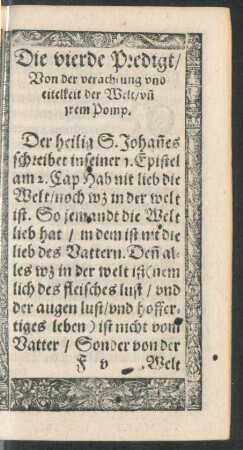 Die vierde Predigt/
Von der verachtung vnd
eitelkeit der Welt/vñ
jrem Pomp.
Der heilig S. Johañes
schreibet in seiner 1. Epistel
am 2. Cap Hab nit lieb die
Welt/noch wz in der welt
ist. So jemandt die Welt
lieb hat / in dem ist nit die
lieb des Vattern. Deñ al-
les wz in der welt ist (nem
lich des fleisches lust / vnd
der augen lust/vnd hoffer-
tiges leben) ist nicht vom
Vatter / Sonder von der
F v Welt